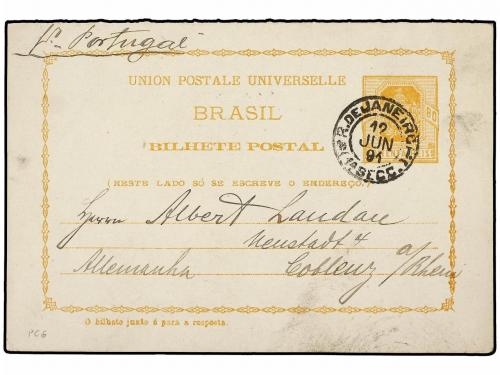 pr Portugal
UNION POSTALE UNIVERSELLE
BRASIL
BILHETE POSTAL
(NESTE LADO SÓ SE ESCREVE O ENDEREÇO.)
80
R. DE JANEIRO
12
JUN
91
1ª SECC.
Herrn Albert Landau
Neustadt 4
Allemanha Coblenz a/Rhein
O bilhete junto é para a resposta.
PC6